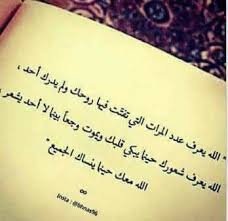 " الله يعرف عدد المرات التي تفتت فيها روحك ولم يدرك أحد ،
الله يعرف شعورك حينما يبكي قلبك وتموت وجعاً بينما لا أحد يشعر ،
الله معك حينما ينساك الجميع "
∞
Insta : @bhnax96